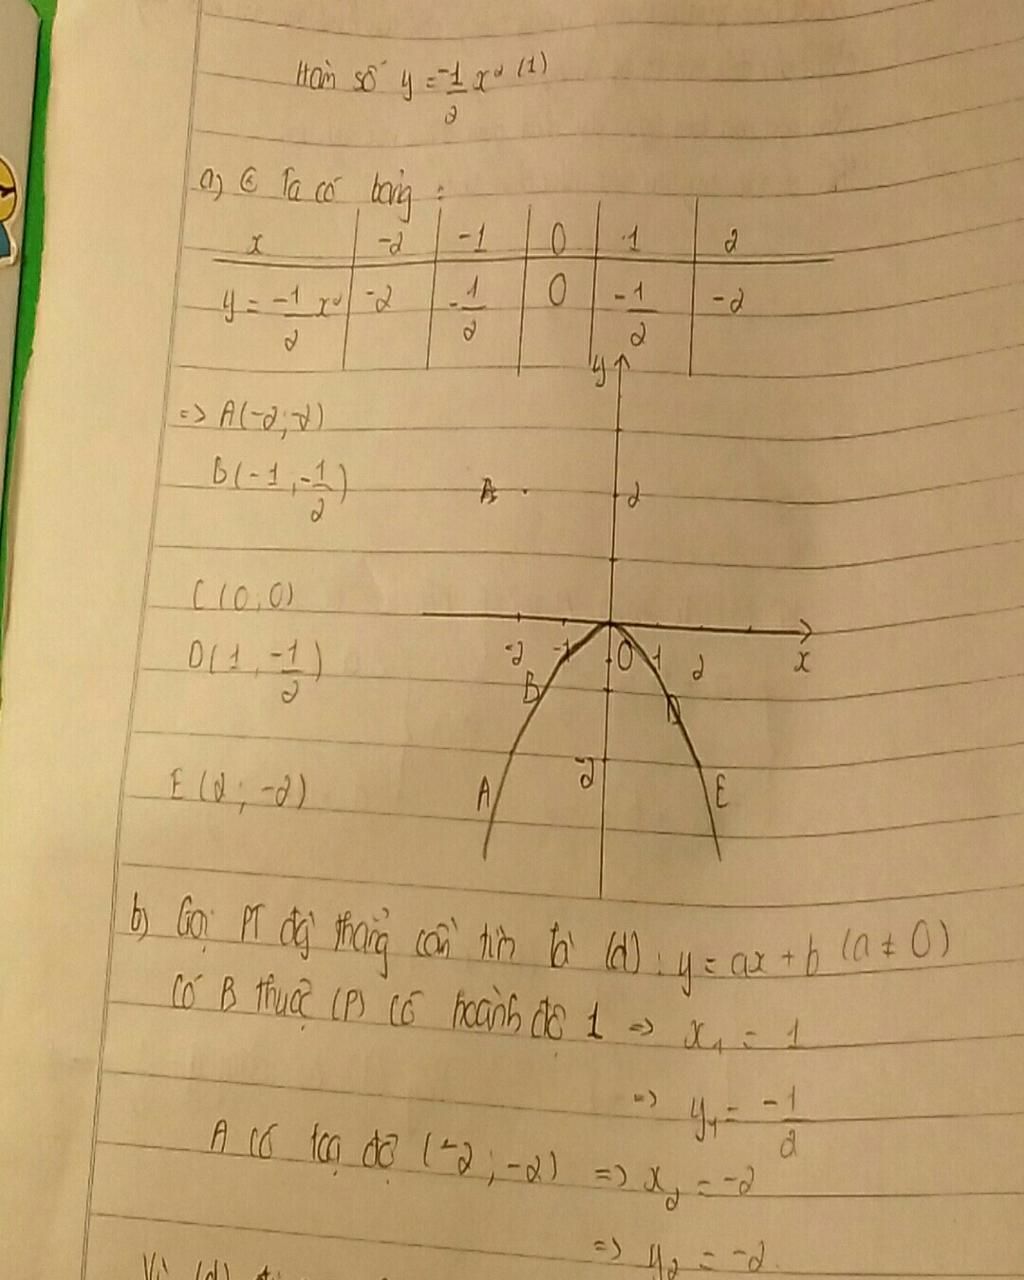 Hàm số y = -1/2 x² (1)
a) Ta có bảng :
x | -2 | -1 | 0 | 1 | 2
y = -1/2 x² | -2 | -1/2 | 0 | -1/2 | -2
y
=> A(-2;-2)
B(-1,-1/2)
A
2
C(0,0)
-2 -1 0 1 2 x
D(1,-1/2)
B D
-2
E(2;-2)
A E
b) Gọi PT đg thẳng cần tìm là (d): y = ax + b (a ≠ 0)
Có B thuộc (P) có hoành độ 1 => x₁ = 1
=> y₁ = -1/2
A có toạ độ (-2;-2) => x₂ = -2
=> y₂ = -2
Vì (d)